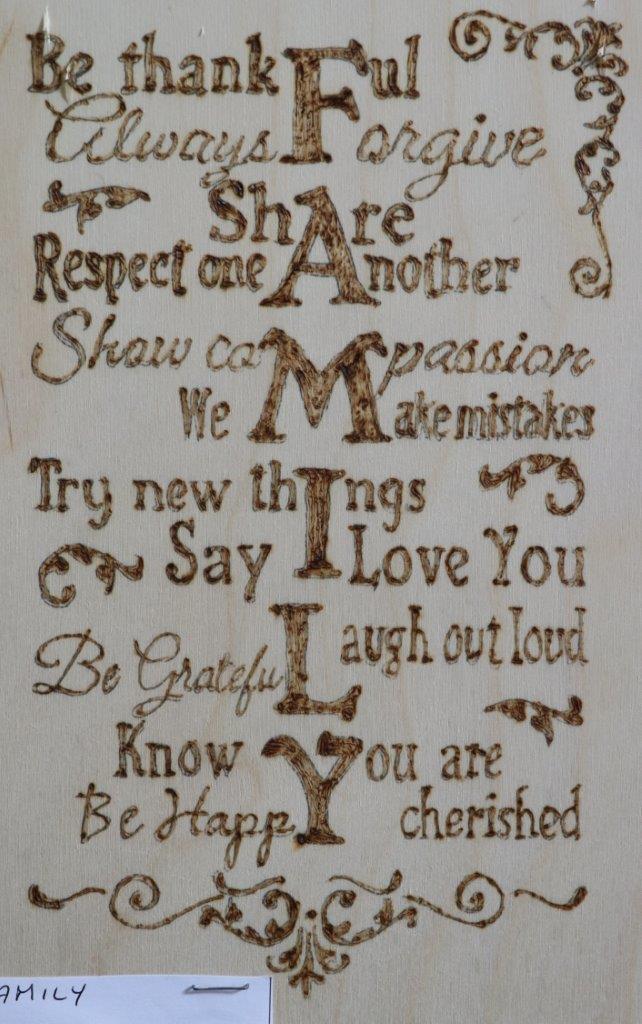 Be thankFul
Always Forgive
ShAre
Respect one Another
Show coMpassion
We Make mistakes
Try new thIngs
Say I Love You
Laugh out loud
Be GratefuL
Know You are
Be HappY cherished
AMILY